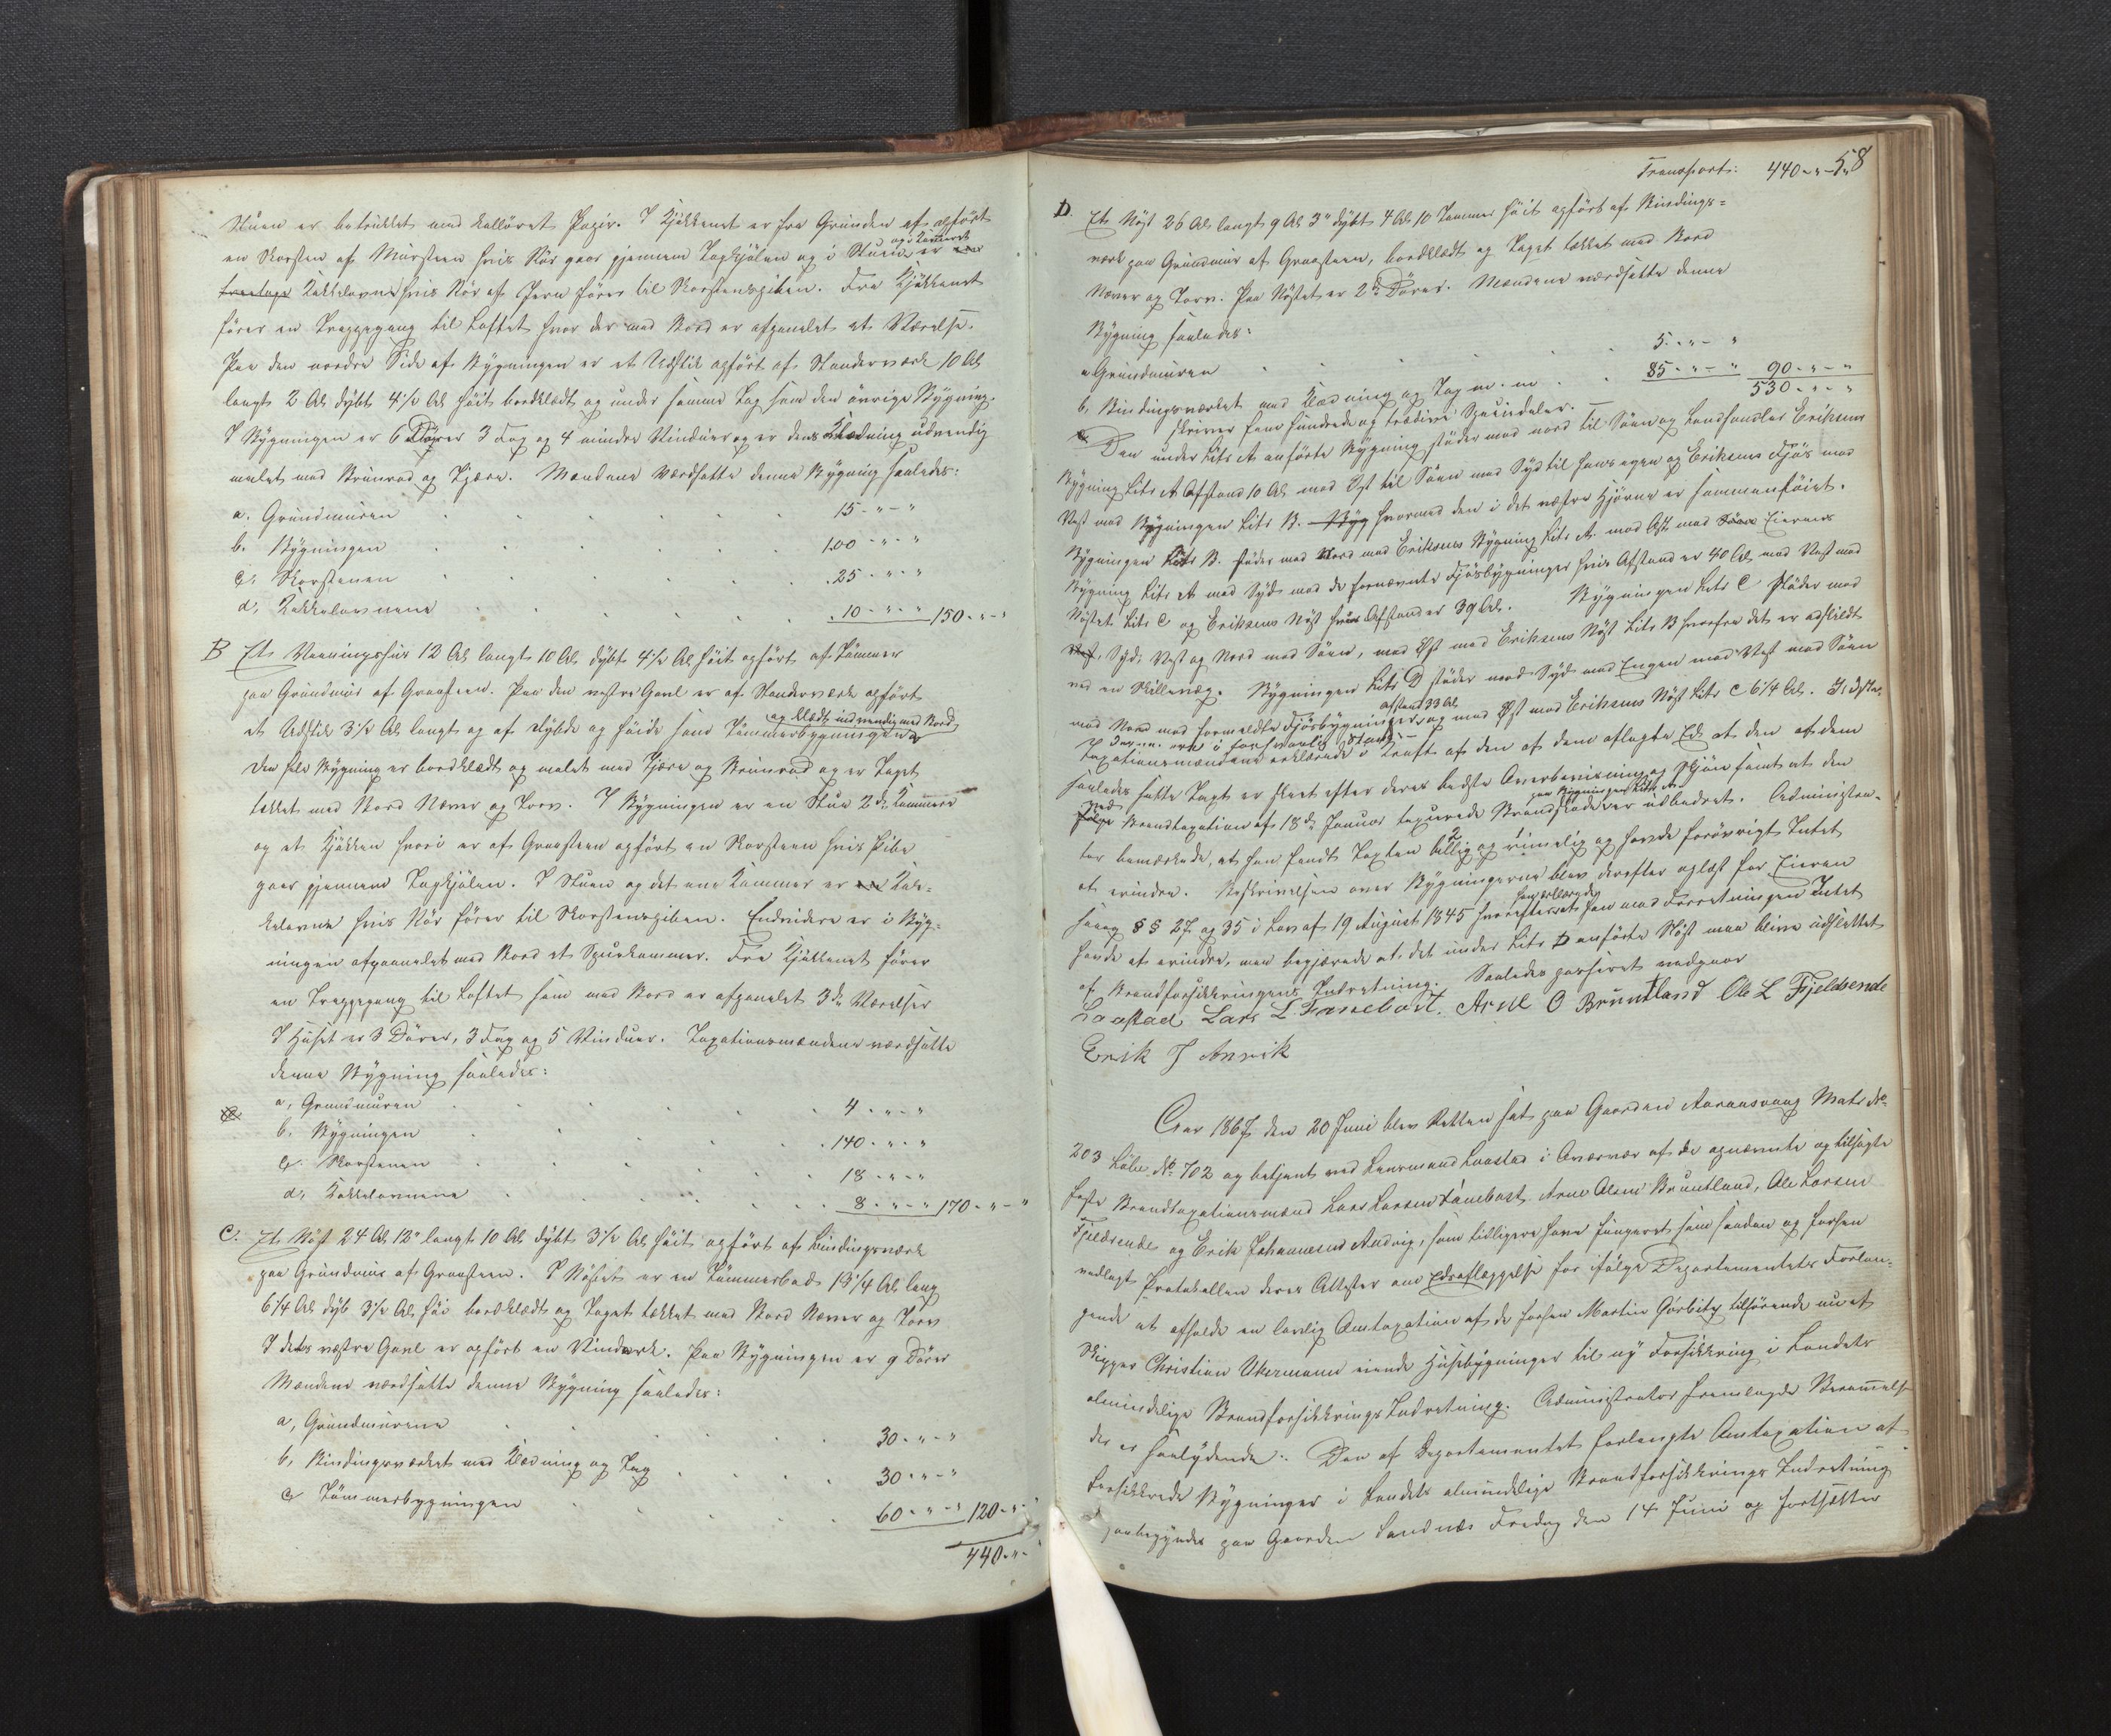 Stuen er betrukket med kulløret Papir. I Kjøkkenet er fra Grunden af opført
en Skorsten af Mursteen hvis Rør gaar gjennem Tagkjølen og i Stuen og Kammeret er
Kakkelovne hvis Rør af Jern fører til Skorstenspiben. Fra Kjøkkenet
fører en Trappegang til Loftet hvor der med Bord er afpanelet et Værelse.
Paa den nordre Side af Bygningen er et Udskik opført af Stenderværk 10 Al
langt 2 Al dybt 4 1/2 Al høit bordklædt og under samme Tag som den øvrige Bygning.
I Bygningen er 6 Dører 3 Fag og 4 mindre Vinduer og er dens Klædning udvendig
malet med Brunrød og Tjære. Mændene værdsatte denne Bygning saaledes:
a. Grundmuren 15 - " - "
b. Bygningen 100 - " - "
c. Skorstenen 25 - " - "
d. Kakkelovnene 10 - " - " 150 - " - "
B Et Vaaningshus 12 Al langt 10 Al dybt 4 1/2 Al høit opført af Tømmer
paa Grundmur af Graasteen. Paa den vestre Gavl er af Stenderværk opført
et Udskik 3 1/2 Al langt og af Dybde og Høide som Tømmerbygningen og klædt indvendig med Bord
Den hele Bygning er bordklædt og malet med Tjære og Brunrød og er Taget
tækket med Bord Næver og Torv. I Bygningen er en Stue 2de Kammere
og et Kjøkken hvori er af Graasteen opført en Skorsteen hvis Pibe
gaar gjennem Tagkjølen. I Stuen og det ene Kammer er Kak-
kelovne hvis Rør fører til Skorstenspiben. Endvidere er i Byg-
ningen afpanelet med Bord et Spiskammer. Fra Kjøkkenet fører
en Trappegang til Loftet som med Bord er afpanelet 3de Værelser
I Huset er 3 Dører, 3 Fag og 5 Vinduer. Taxationsmændene værdsatte
denne Bygning saaledes:
a, Grundmuren 4 - " - "
b. Bygningen 140 - " - "
c. Skorstenen 18 - " - "
d. Kakkelovnene 8 - " - " 170 - " - "
C. Et Nøst 24 Al 12" langt 10 Al dybt 3 1/2 Al høit opført af Bindingsværk
paa Grundmur af Graasteen. I Nøstet er en Tømmerbod 13 1/4 Al lang
6 1/4 Al dyb 3 1/2 Al høi bordklædt og Taget tækket med Bord Næver og Torv
I dets vestre Gavl er opført en Vindark. Paa Bygningen er 9 Dører
Mændene værdsatte denne Bygning saaledes:
a, Grundmurene 30 - " - "
b, Bindingsværket med Klædning og Tag 30 - " - "
c Tømmerbygningen 60 - " - " 120 - " - "
440 - " -
58
Transport: 440 - " - "
D. Et Nøst 26 Al langt 9 Al 3" dybt 4 Al 10 Tommer høit opført af Bindings-
værk paa Grundmur af Graasteen, bordklædt og Taget tækket med Bord
Næver og Torv. Paa Nøstet er 2de Dører. Mændene værdsatte denne
Bygning saaledes:
a Grundmuren 5 - " - "
b, Bindingsværket med Klædning og Tag m. m. 85 - " - " 90 - " - "
530 - " - "
skriver fem hundrede og tredive Speciedaler.
Den under Litr A anførte Bygning støder mod nord til Søen og Landhandler Eriksens
Bygning Litr A Afstand 10 Al mod Øst til Søen mod Syd til hans egen og Eriksens Fjøs mod
Vest mod Bygningen Litr B. Byg hvormed den i det vestre Hjørne er sammenføiet.
Bygningen Litr B. støder mod Nord mod Eriksens Bygning Litr A. mod Øst mod Eierens
Bygning Litr A mod Syd mod de fornævnte Fjøsbygninger hvis Afstand er 40 Al mod Vest mod
Nøstet Litr C og Eriksens Nøst hvis Afstand er 39 Al. Bygningen Litr C støder mod
Syd, Vest og Nord mod Søen, mod Øst mod Eriksens Nøst Litr B hvorfra det er adskildt
ved en Skillevæg. Bygningen Litr D støder mod Syd mod Engen mod Vest mod Søen
mod Nord mod formeldte Fjøsbygninger afstand 33 Al og mod Øst mod Eriksens Nøst Litr C 6 1/4 Al.
Taxationsmændene erklærede i Kraft af den af dem aflagte Ed at den af dem
saaledes satte Taxt er skeet efter deres bedste Overbeviisning og Skjøn samt at den
ved Brandtaxation af 18de Januar taxerede Brandskade paa Bygningen Litr A er udbedret. Administra-
tor bemærkede, at han fandt Taxten billig og rimelig og havde forøvrigt Intet
at erindre. Beskrivelsen over Bygningerne blev derefter oplæst for Eieren
samt §§ 27 og 35 i Lov af 19 August 1845 hvorefter han erklærede at han mod Forretningen Intet
havde at erindre, men begjærede at det under Litr D anførte Nøst maa blive udslettet
af Brandforsikkringens Indretning. Saaledes passeret vedgaar
Laastad Lars L Fannebost. Arne O Bruntland Ole L Fjeldsende
Erik J Anvik
Aar 1867 den 20 Juni blev Retten sat paa Gaarden Aaransvaag Matr No
203 Løbe No 702 og betjent ved Lensmand Laastad i Overvær af de opnævnte og tilsagte
faste Brandtaxationsmænd Lars Larsen Fannebost Arne Olsen Bruntland, Ole Larsen
Fjeldsende og Erik Johannesen Andvig, som tidligere have fungeret som saadan og forhen
vedlagt Protokollen deres Attester om Edsaflæggelse for ifølge Departementets Forlan-
gende at afholde en lovlig Omtaxation af de forhen Martin Gørbitz tilhørende nu af
Skipper Christian Ukermann eiende Husebygninger til ny Forsikkring i Landets
almindelige Brandforsikkrings Indretning. Administrator fremlagde Berammelse
der er saalydende: Den af Departementet forlangte Omtaxation af
forsikkrede Bygninger i Landets almindelige Brandforsikkrings Indretning
paabegyndes paa Gaarden Sandnæs Fredag den 14 Juni og fortsætter